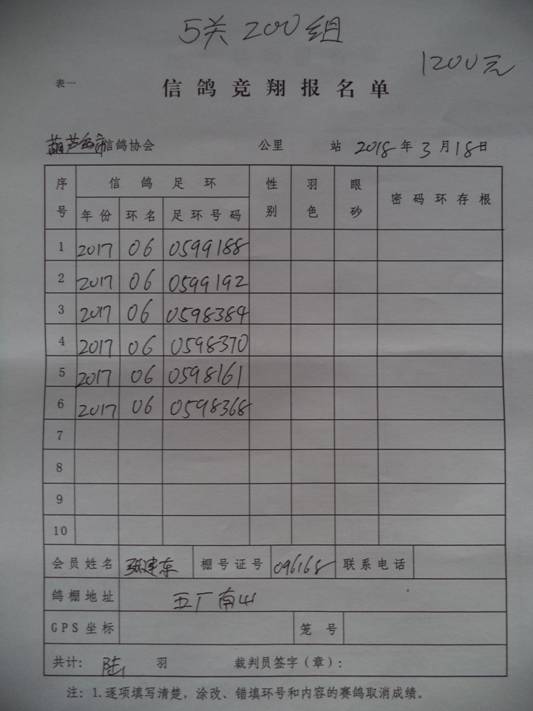 5关 200组
1200元
表一
信鸽竞翔报名单
葫芦岛市信鸽协会 公里 站 2018年3月18日
序号 信鸽足环 性别 羽色 眼砂 密码环存根
年份 环名 足环号码
1 2017 06 0599188
2 2017 06 0599192
3 2017 06 0598384
4 2017 06 0598370
5 2017 06 0598161
6 2017 06 0598368
7
8
9
10
会员姓名 建东 棚号证号 096168 联系电话
鸽棚地址 五厂南山
GPS坐标 笼号
共计: 陆 羽 裁判员签字(章):
注: 1.逐项填写清楚,涂改、错填环号和内容的赛鸽取消成绩。